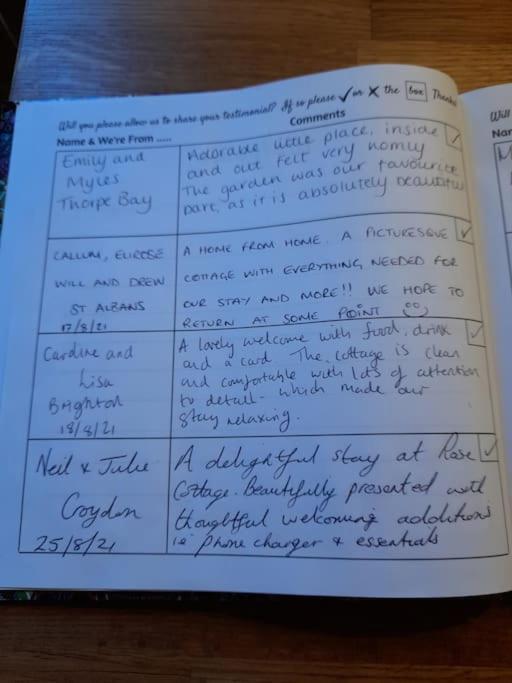 Will you please allow us to share your testimonial? If so please ✓ or ✗ the box Thanks
Name & We're From .....
Comments
Emily and
Myles
Thorpe Bay
Adorable little place, inside
and out felt very homly
The garden was our favourite
part, as it is absolutely beautiful
✓
CALLUM, ELIROSE
WILL AND DREW
ST ALBANS
17/8/21
A HOME FROM HOME. A PICTURESQUE
COTTAGE WITH EVERYTHING NEEDED FOR
OUR STAY AND MORE!! WE HOPE TO
RETURN AT SOME POINT ☺
✓
Caroline and
Lisa
Brighton
18/8/21
A lovely welcome with food, drink
and a card. The cottage is clean
and comfortable with lots of attention
to detail - which made our
stay relaxing.
✓
Neil & Julie
Croydon
25/8/21
A delightful stay at Rose
Cottage. Beautifully presented with
thoughtful welcoming additions
ie phone charger & essentials
✓
Will
Nam